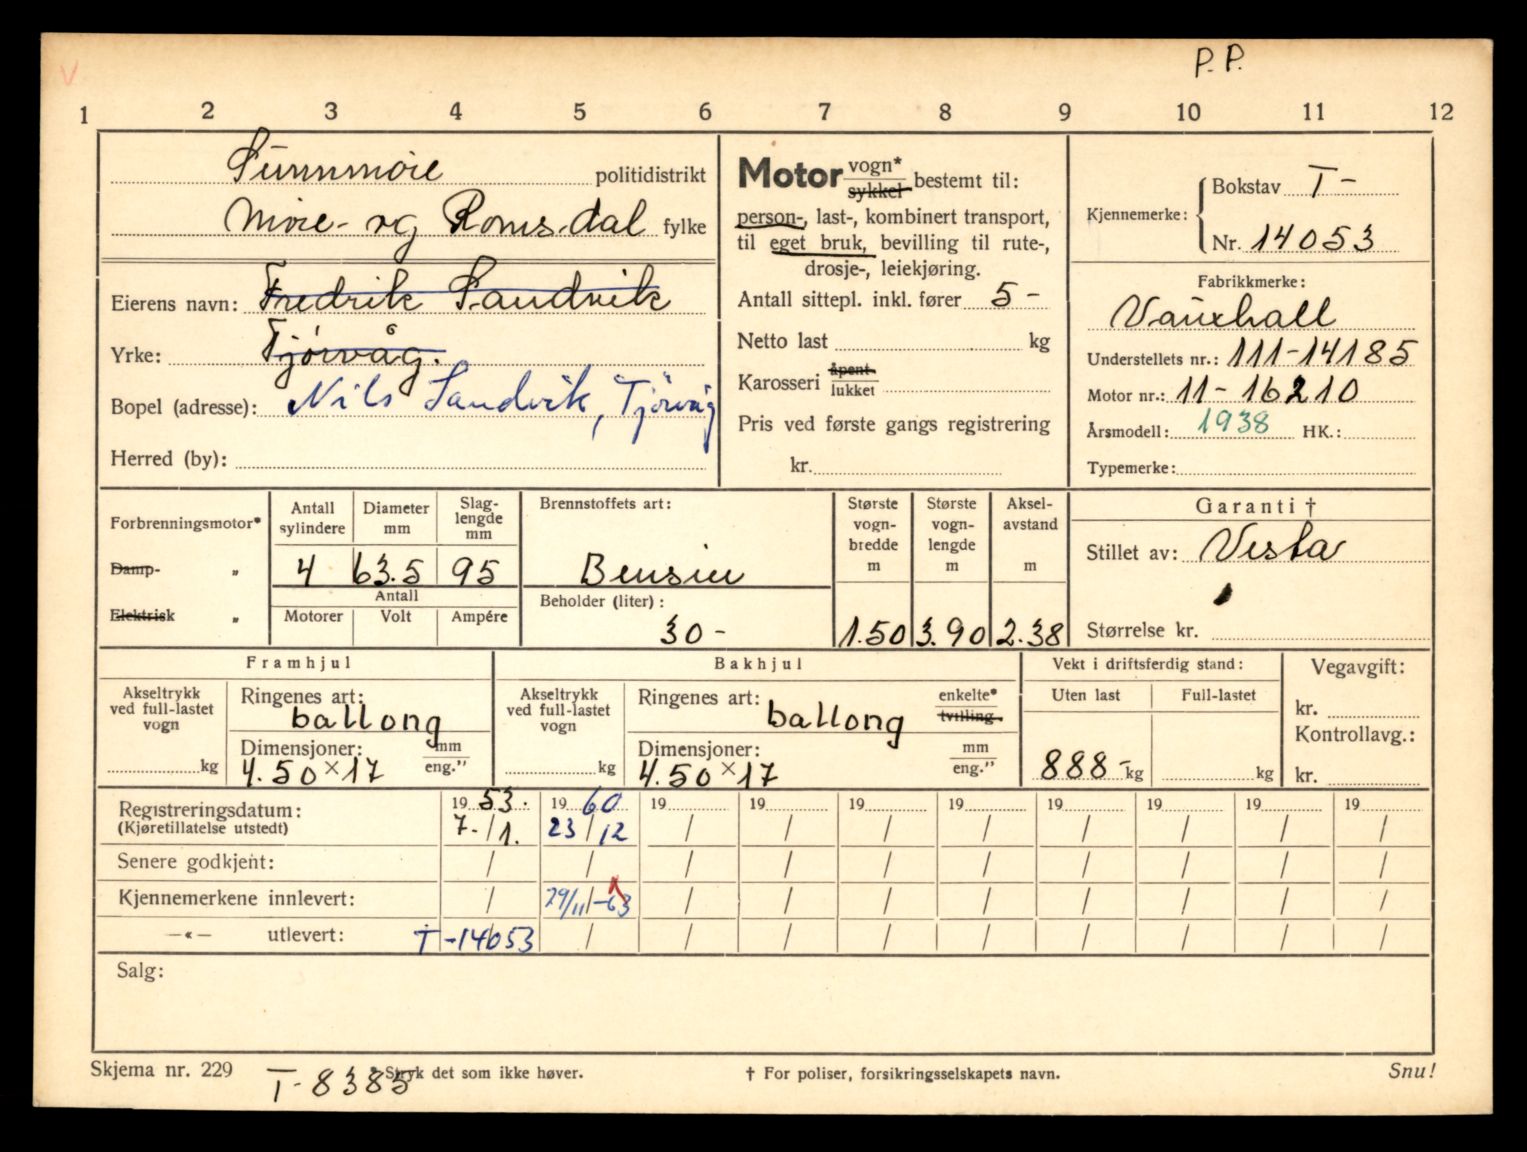 V
P.P.
1 2 3 4 5 6 7 8 9 10 11 12
Sunnmöre politidistrikt
Möre- og Romsdal fylke
Eierens navn: Fredrik Sandvik
Yrke: Tjørvåg.
Bopel (adresse): Nils Sandvik, Tjörvåg
Herred (by):
Motor vogn* sykkel bestemt til:
person-, last-, kombinert transport,
til eget bruk, bevilling til rute-,
drosje-, leiekjøring.
Antall sittepl. inkl. fører 5 -
Netto last kg
Karosseri åpent lukket
Pris ved første gangs registrering
kr.
Kjennemerke: Bokstav T-
Nr. 14053
Fabrikkmerke:
Vauxhall
Understellets nr.: 111-14185
Motor nr.: 11-16210
Årsmodell: 1938 HK.:
Typemerke:
Forbrenningsmotor*
Damp- "
Elektrisk "
Antall sylindere Diameter mm Slag-lengde mm
4 63.5 95
Antall
Motorer Volt Ampére
Brennstoffets art:
Bensin
Beholder (liter):
30 -
Største vogn-bredde m Største vogn-lengde m Aksel-avstand m
1.50 3.90 2.38
Garanti †
Stillet av: Vesta
Størrelse kr.
Framhjul
Akseltrykk ved full-lastet vogn
kg
Ringenes art:
ballong
Dimensjoner: mm
4.50 × 17 eng."
Bakhjul
Akseltrykk ved full-lastet vogn
kg
Ringenes art: enkelte*
ballong tvilling
Dimensjoner: mm
4.50 × 17 eng."
Vekt i driftsferdig stand:
Uten last Full-lastet
888- kg kg
Vegavgift:
kr.
Kontrollavg.:
kr.
Registreringsdatum: 19 53. 19 60 19 19 19 19 19 19 19 19
(Kjøretillatelse utstedt) 7. / 1. 23 / 12 / / / / / / / /
Senere godkjent: / / / / / / / / / /
Kjennemerkene innlevert: / 29/11-63 / / / / / / / /
—«— utlevert: T-14053 / / / / / / / / /
Salg:
Skjema nr. 229 * Stryk det som ikke høver. † For poliser, forsikringsselskapets navn. Snu!
T-8385